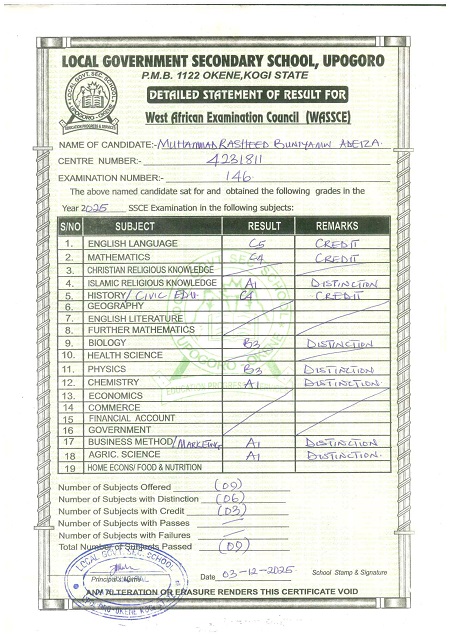 LOCAL GOVERNMENT SECONDARY SCHOOL, UPOGORO
P.M.B. 1122 OKENE, KOGI STATE
DETAILED STATEMENT OF RESULT FOR
West African Examination Council (WASSCE)
NAME OF CANDIDATE:- MUHAMMAD RASHEED BUNIYAMIN ADEIZA
CENTRE NUMBER:- 4231811
EXAMINATION NUMBER:- 146
The above named candidate sat for and obtained the following grades in the
Year 2025 SSCE Examination in the following subjects:
S/NO SUBJECT RESULT REMARKS
1. ENGLISH LANGUAGE C5 CREDIT
2. MATHEMATICS C4 CREDIT
3. CHRISTIAN RELIGIOUS KNOWLEDGE
4. ISLAMIC RELIGIOUS KNOWLEDGE A1 DISTINCTION
5. HISTORY/ CIVIC EDU. C4 CREDIT
6. GEOGRAPHY
7. ENGLISH LITERATURE
8. FURTHER MATHEMATICS
9. BIOLOGY B3 DISTINCTION
10. HEALTH SCIENCE
11. PHYSICS B3 DISTINCTION
12. CHEMISTRY A1 DISTINCTION
13. ECONOMICS
14. COMMERCE
15 FINANCIAL ACCOUNT
16 GOVERNMENT
17 BUSINESS METHOD/ MARKETING A1 DISTINCTION
18 AGRIC. SCIENCE A1 DISTINCTION.
19 HOME ECONS/ FOOD & NUTRITION
Number of Subjects Offered (09)
Number of Subjects with Distinction (06)
Number of Subjects with Credit (03)
Number of Subjects with Passes
Number of Subjects with Failures
Total Number of Subjects Passed (09)
LOCAL GOVT. SEC. SCHOOL
Date 03-12-2025 School Stamp & Signature
ANY ALTERATION OR ERASURE RENDERS THIS CERTIFICATE VOID